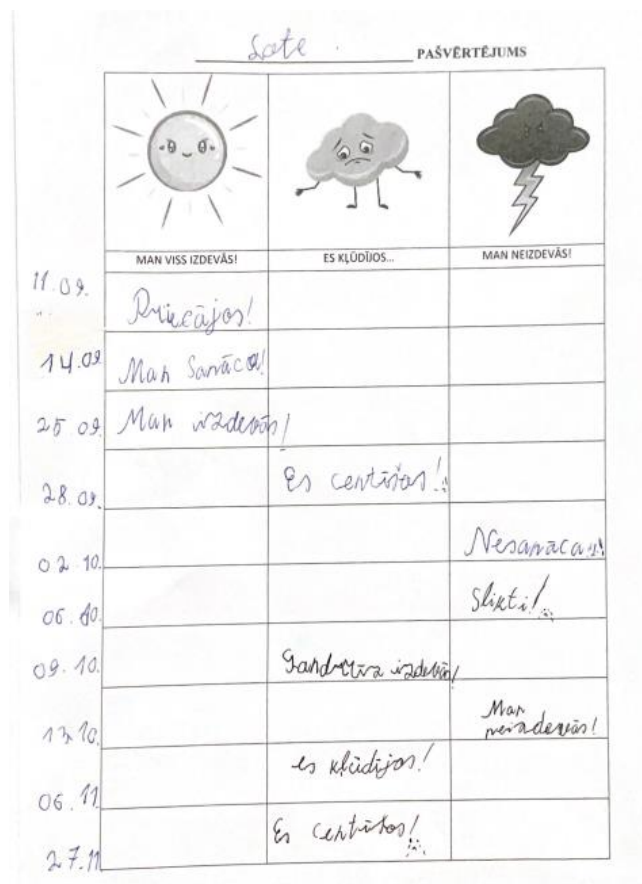 Lote PAŠVĒRTĒJUMS
MAN VISS IZDEVĀS! ES KĻŪDĪJOS... MAN NEIZDEVĀS!
11.09. Priecājos!
14.09 Man Sanāca!
25 09. Man izdevās!
28.09. Es centīšos!
02.10. Nesanāca!
06.10. Slikti!
09.10. Gandrīz izdevās!
13.10. Man
neizdevās!
06.11 es kļūdījos!
27.11 Es centīšos!